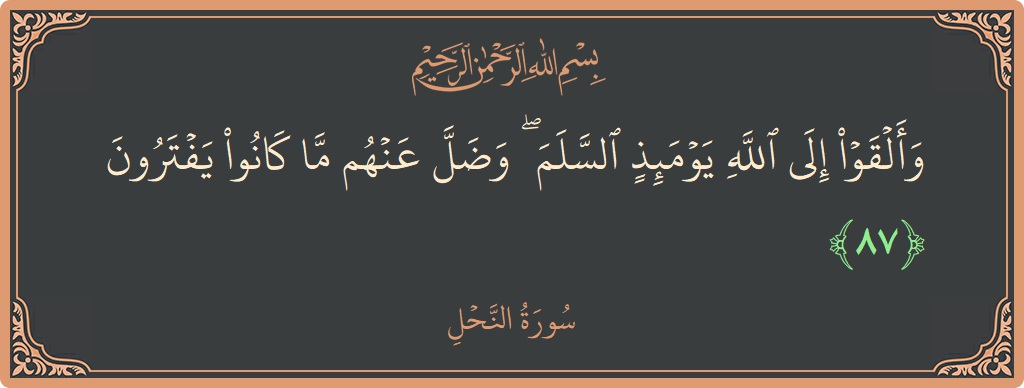 بِسْمِ اللهِ الرَّحْمٰنِ الرَّحِيْمِ
وَأَلْقَوْا۟ إِلَى ٱللَّهِ يَوْمَئِذٍ ٱلسَّلَمَ ۖ وَضَلَّ عَنْهُم مَّا كَانُوا۟ يَفْتَرُونَ
﴿٨٧﴾
سُورَةُ النَّحْلِ